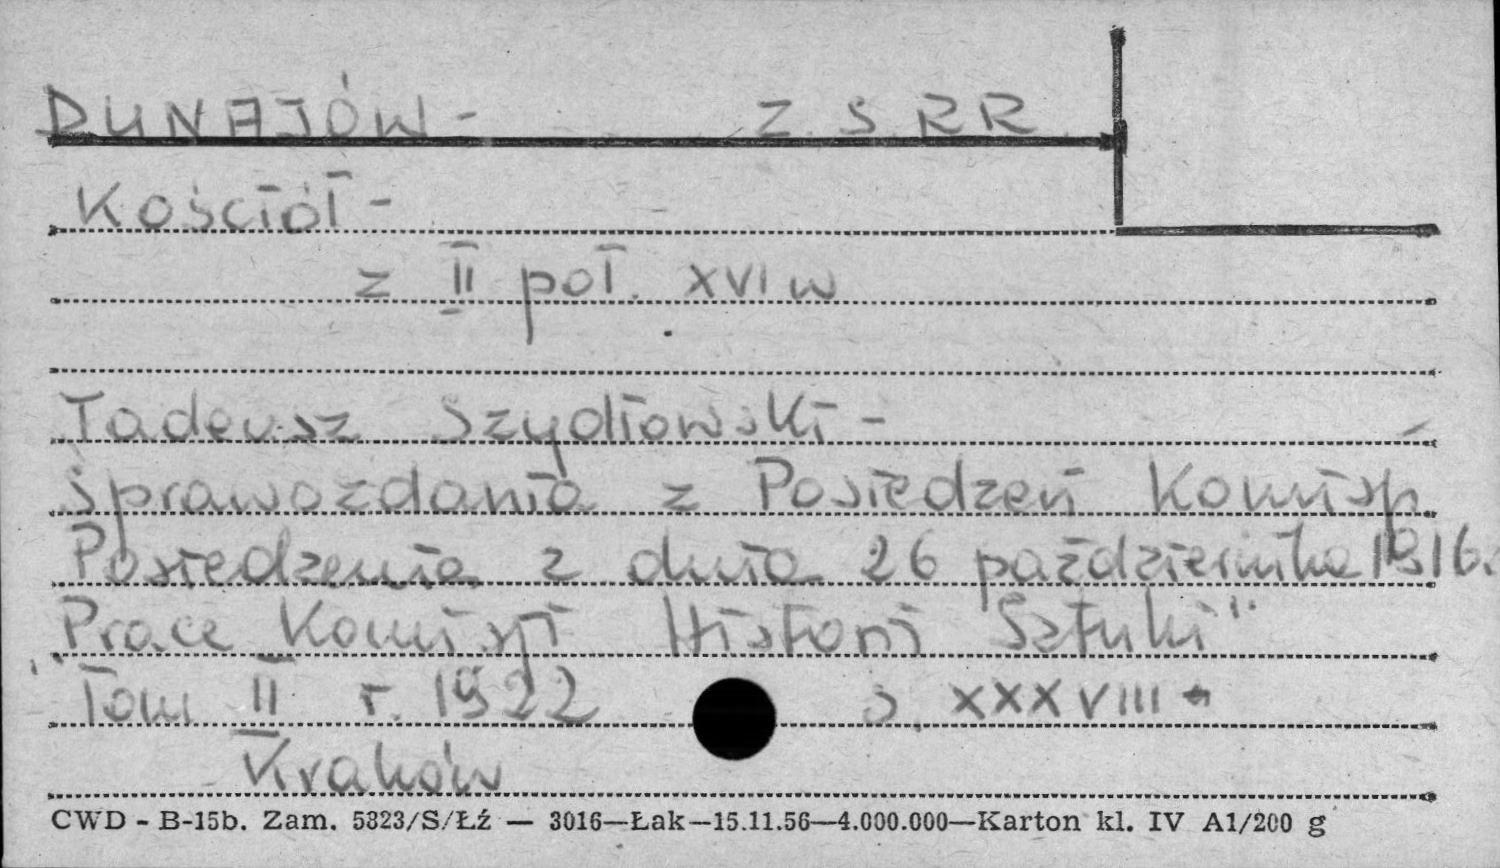 DUNAJÓW - Z.S.RR.
Kościół -
z II poł. XVI w
Tadeusz Szydłowski -
Sprawozdania z Posiedzeń Komisji
Posiedzenia z dnia 26 października 1916.
"Prace Komisji Historii Sztuki"
Tom II r. 1922 s. XXXVIII
Kraków
CWD - B-15b. Zam. 5823/S/Łź — 3016—Łak—15.11.56—4.000.000—Karton kl. IV A1/200 g